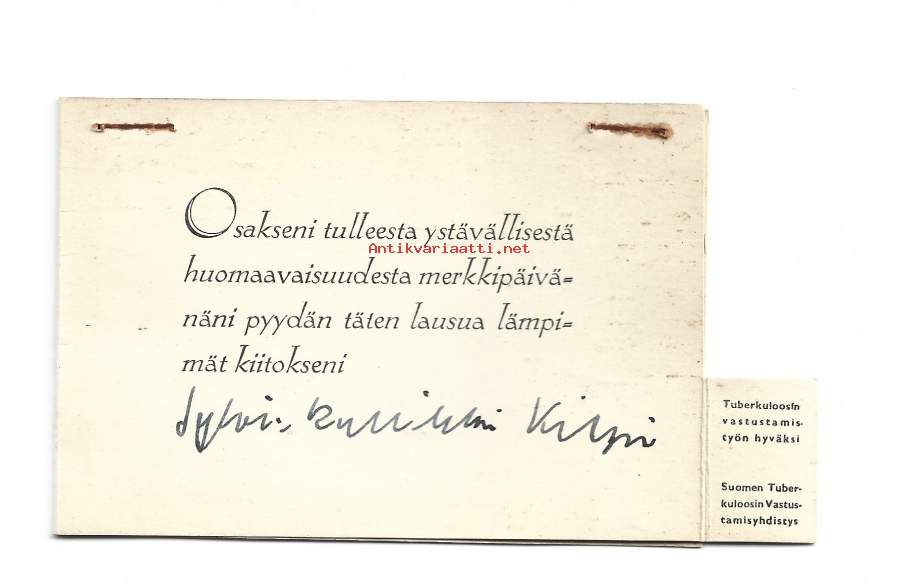 Osakseni tulleesta ystävällisestä
Antikvariaatti.net
huomaavaisuudesta merkkipäivä=
näni pyydän täten lausua lämpi=
mät kiitokseni
Sylvi-Kyllikki Kilpi
Tuberkuloosin
vastustamis-
työn hyväksi
Suomen Tuber-
kuloosin Vastus-
tamisyhdistys